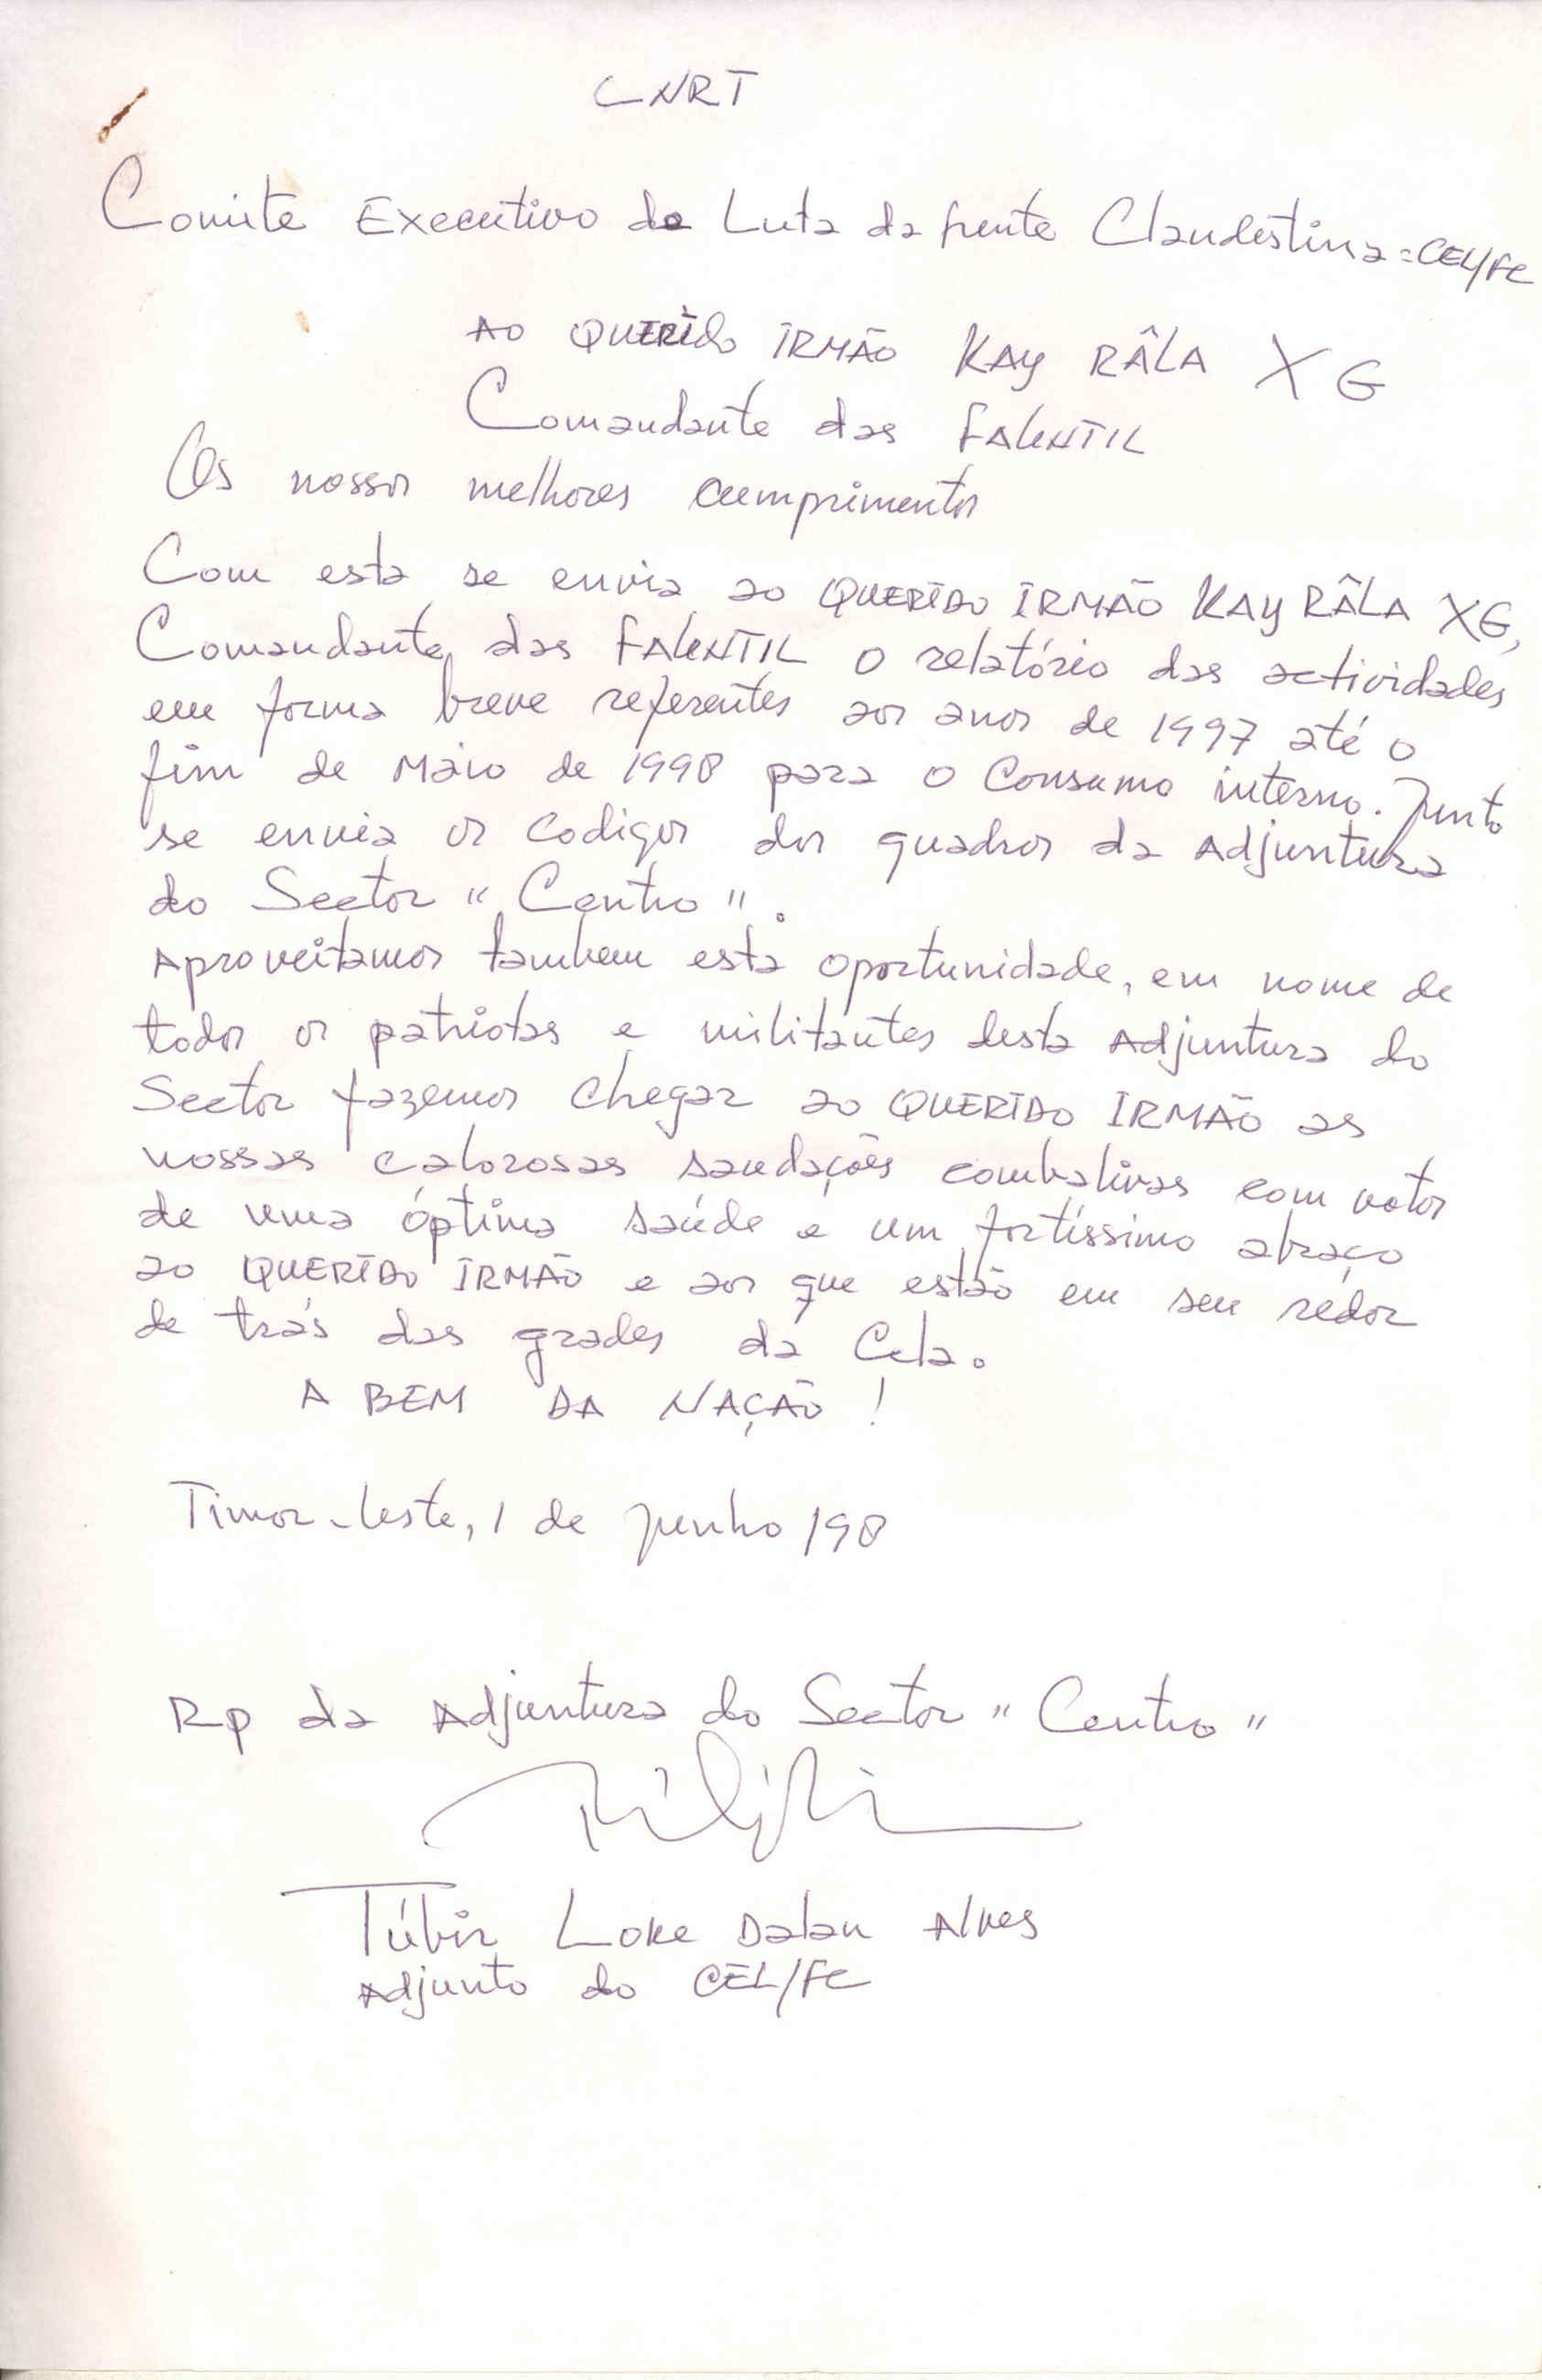 CNRT
Comite Executivo da Luta da frente Clandestina = CEL/FC
AO QUERIdo IRMÃO KAY RÂLA X G
Comandante das FALINTIL
Os nossos melhores cumprimentos
Com esta se envia ao QUERIDO IRMÃO KAY RÂLA XG,
Comandante das FALINTIL o relatório das actividades
em forma breve referentes aos anos de 1997 até o
fim de Maio de 1998 para o Consumo interno. Junto
se envia os codigos dos quadros da Adjuntura
do Sector "Centro".
Aproveitamos tambem esta oportunidade, em nome de
todos os patriotas e militantes desta Adjuntura do
Sector fazemos chegar ao QUERIDO IRMÃO as
nossas calorosas saudações combativas com votos
de uma óptima saúde e um fortíssimo abraço
ao QUERIDO IRMÃO e aos que estão em seu redor
de trás das grades da Cela.
A BEM DA NAÇÃO !
Timor-Leste, 1 de Junho 198
Rp da Adjuntura do Sector "Centro"
Túbir Loke Dalan Alves
Adjunto do CEL/FC